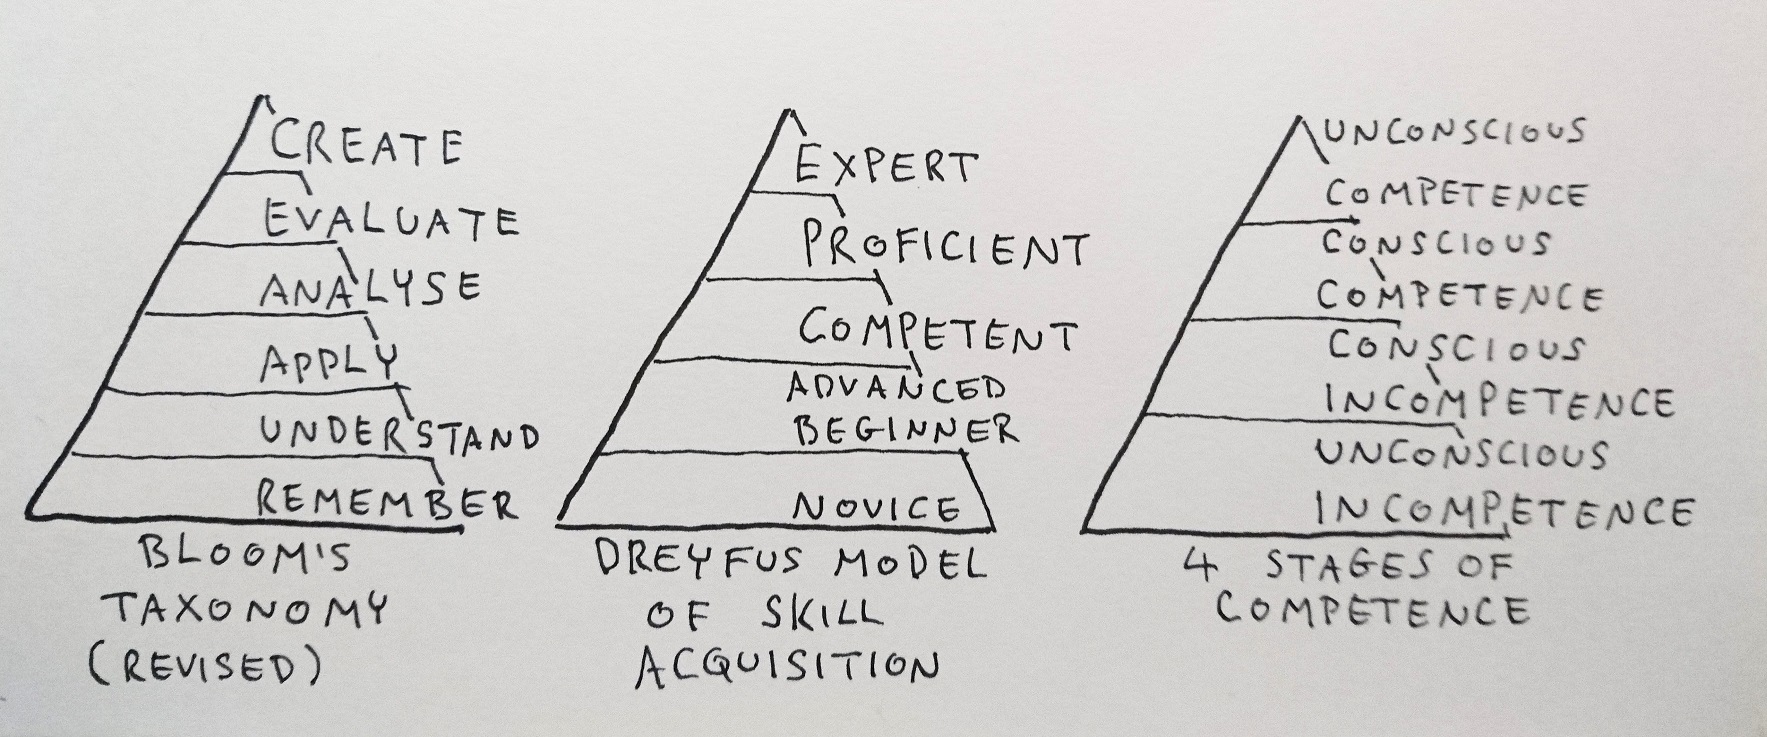 CREATE
EVALUATE
ANALYSE
APPLY
UNDERSTAND
REMEMBER
BLOOM'S
TAXONOMY
(REVISED)
EXPERT
PROFICIENT
COMPETENT
ADVANCED
BEGINNER
NOVICE
DREYFUS MODEL
OF SKILL
ACQUISITION
UNCONSCIOUS
COMPETENCE
CONSCIOUS
COMPETENCE
CONSCIOUS
INCOMPETENCE
UNCONSCIOUS
INCOMPETENCE
4 STAGES OF
COMPETENCE